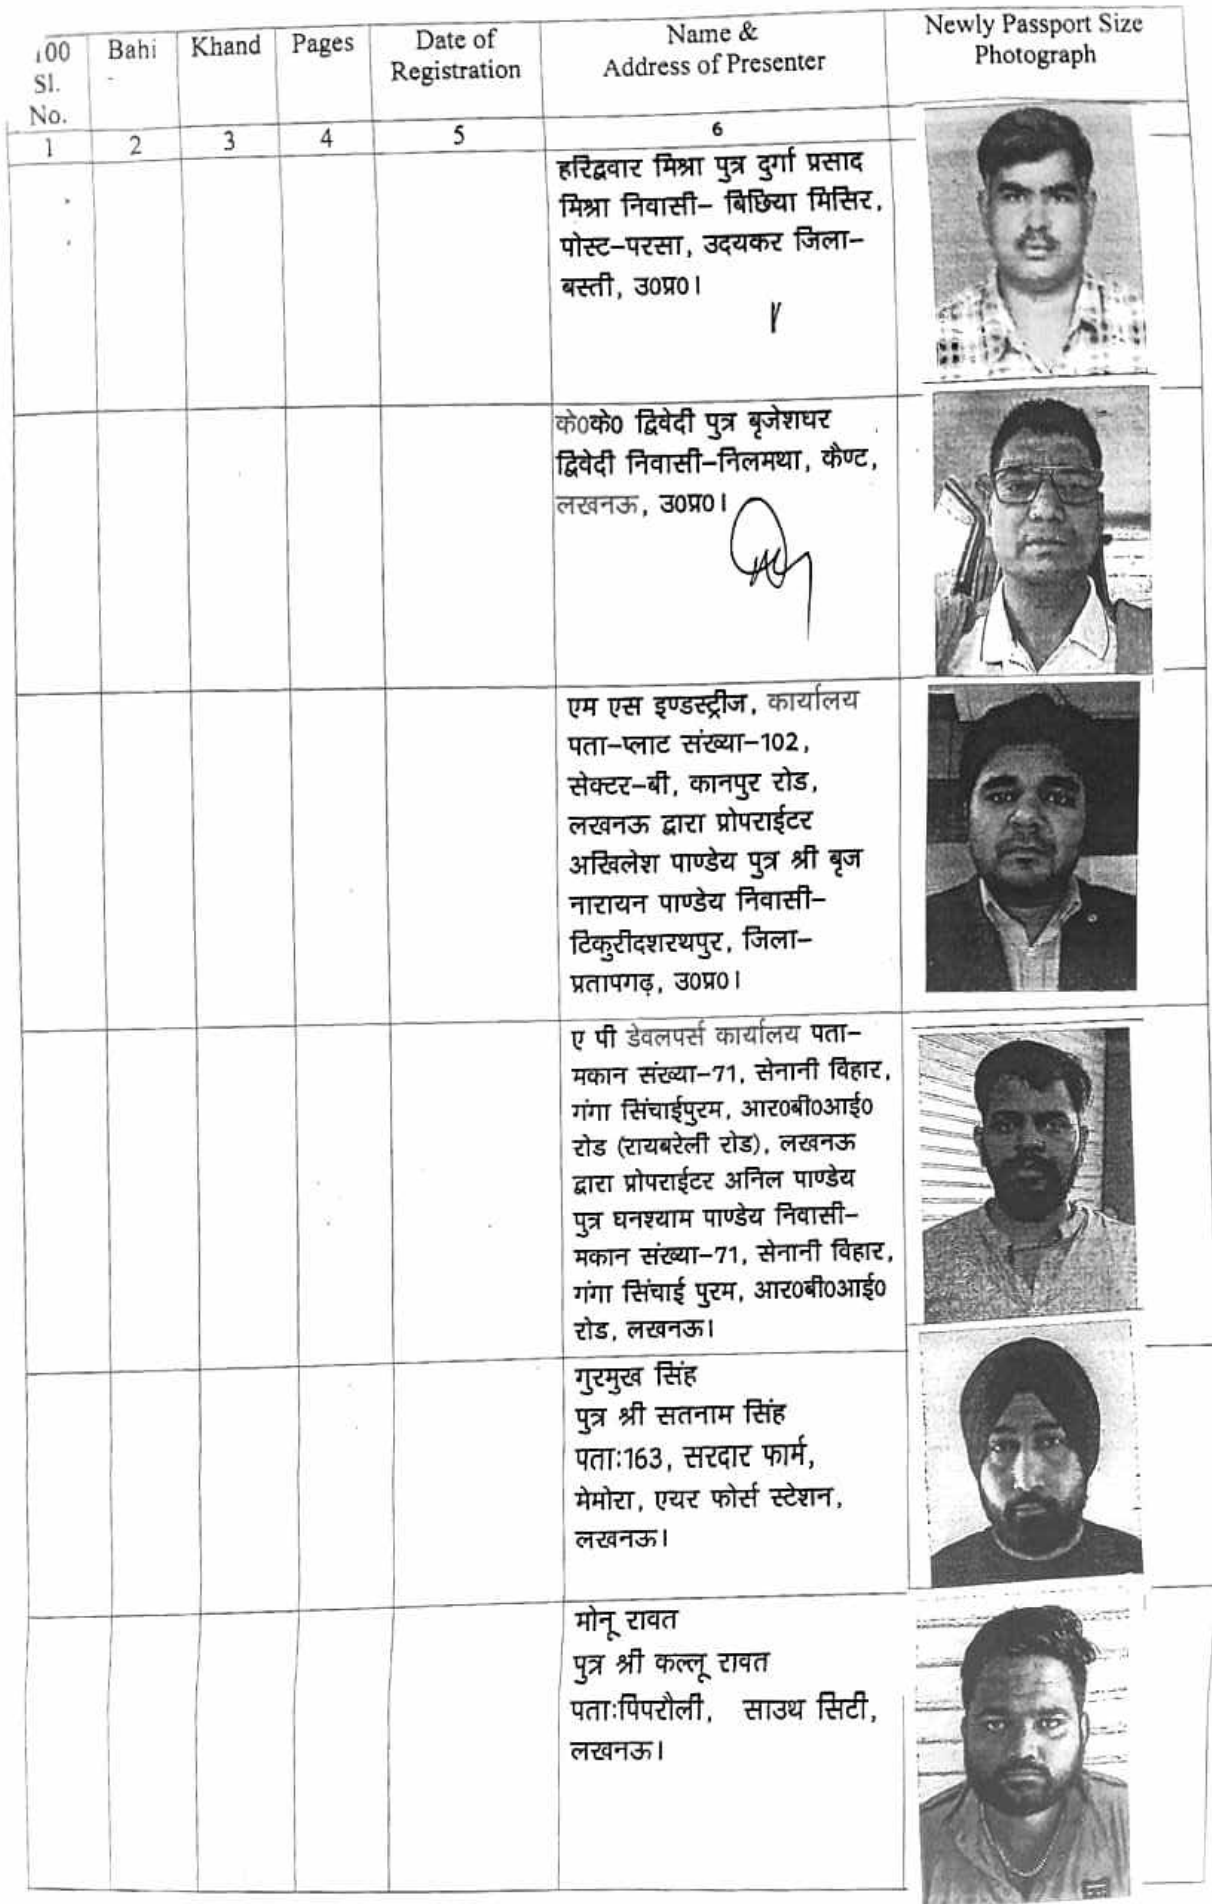 100 Sl. No.
Bahi
Khand
Pages
Date of
Registration
Name &
Address of Presenter
Newly Passport Size
Photograph
1
2
3
4
5
6
हरिद्ववार मिश्रा पुत्र दुर्गा प्रसाद
मिश्रा निवासी– बिछिया मिसिर,
पोस्ट–परसा, उदयकर जिला–
बस्ती, उ0प्र0।
के0के0 द्विवेदी पुत्र बृजेशधर
द्विवेदी निवासी–निलमथा, कैण्ट,
लखनऊ, उ0प्र0।
एम एस इण्डस्ट्रीज, कार्यालय
पता–प्लाट संख्या–102,
सेक्टर–बी, कानपुर रोड,
लखनऊ द्वारा प्रोपराईटर
अखिलेश पाण्डेय पुत्र श्री बृज
नारायन पाण्डेय निवासी–
टिकुरीदशरथपुर, जिला–
प्रतापगढ़, उ0प्र0।
ए पी डेवलपर्स कार्यालय पता–
मकान संख्या–71, सेनानी विहार,
गंगा सिंचाईपुरम, आर0बी0आई0
रोड (रायबरेली रोड), लखनऊ
द्वारा प्रोपराईटर अनिल पाण्डेय
पुत्र घनश्याम पाण्डेय निवासी–
मकान संख्या–71, सेनानी विहार,
गंगा सिंचाई पुरम, आर0बी0आई0
रोड, लखनऊ।
गुरमुख सिंह
पुत्र श्री सतनाम सिंह
पता:163, सरदार फार्म,
मेमोरा, एयर फोर्स स्टेशन,
लखनऊ।
मोनू रावत
पुत्र श्री कल्लू रावत
पता:पिपरौली, साउथ सिटी,
लखनऊ।